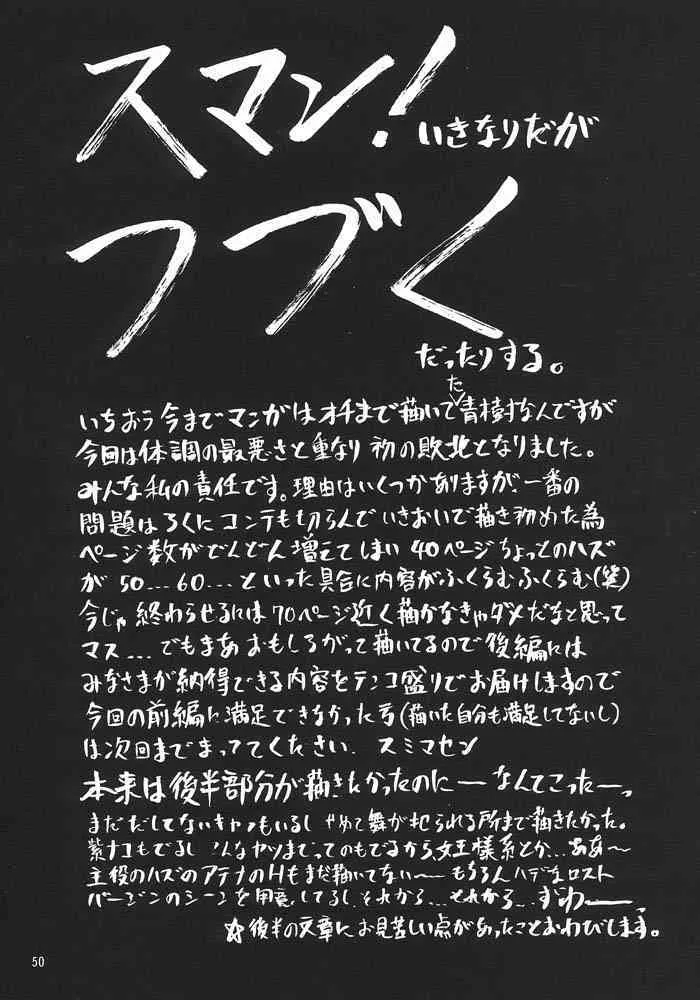 スマン!
いきなりだが
つづく
だったりする。
いちおう今までマンガはオチまで描いてた青樹村なんですが
今回は体調の最悪さと重なり 初の敗北となりました。
みんな私の責任です。理由はいくつかありますが、一番の
問題はろくにコンテも切らんでいきおいで描き初めた為
ページ数がどんどん増えてしまい 40ページちょっとのハズ
が 50…60…といった具合に内容がふくらむふくらむ(笑)
今じゃ終わらせるには70ページ近く描かなきゃダメだなと思って
マス… でもまあおもしろがって描いてるので 後編には
みなさまが納得できる内容をテンコ盛りでお届けしますので
今回の前編に満足できなかった方(描いた自分も満足してないし)
は次回までまっててください. スミマセン
本来は後半部分が描きたかったのにーなんてこったーっ
まだだしてないキャラもいるし 舞が犯られる所まで描きたかった。
紫ナコもでるし こんなヤツまでってのもでるから女王様系とか…ああ〜
主役のハズのアテナのHもまだ描いてない〜 もちろんハデなロスト
バージンのシーンを用意してるし それから…それから…
☆後半の文章にお見苦しい点があったことおわびします。
50